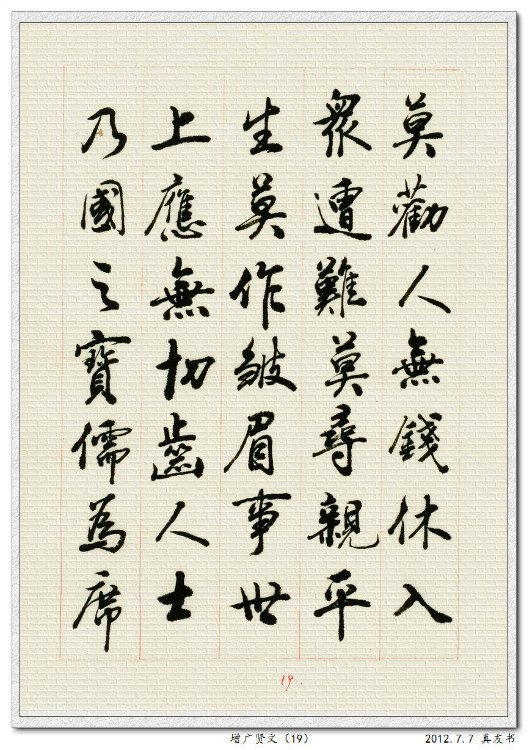 莫勸人無錢休入
衆遭難莫尋親平
生莫作皺眉事世
上應無切齒人士
乃國之寶儒為席
19.
增广贤文（19）
2012.7.7 真友书